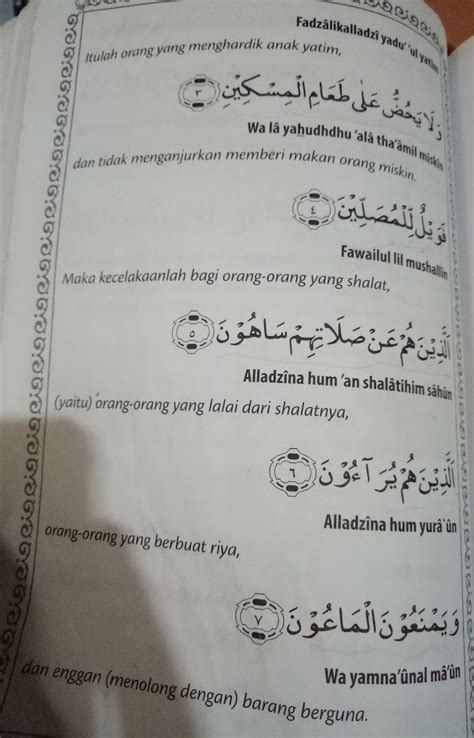 Fadzâlikalladzî yadu' 'ul yatîm
Itulah orang yang menghardik anak yatim,
وَلَا يَحُضُّ عَلٰى طَعَامِ الْمِسْكِيْنِ ٣
Wa lâ yahudhdhu 'alâ tha'âmil miskîn
dan tidak menganjurkan memberi makan orang miskin.
فَوَيْلٌ لِّلْمُصَلِّيْنَ ٤
Fawailul lil mushallîn
Maka kecelakaanlah bagi orang-orang yang shalat,
الَّذِيْنَ هُمْ عَنْ صَلَاتِهِمْ سَاهُوْنَ ٥
Alladzîna hum 'an shalâtihim sâhûn
(yaitu) orang-orang yang lalai dari shalatnya,
الَّذِيْنَ هُمْ يُرَآءُوْنَ ٦
Alladzîna hum yurâ`ûn
orang-orang yang berbuat riya,
وَيَمْنَعُوْنَ الْمَاعُوْنَ ٧
Wa yamna'ûnal mâ'ûn
dan enggan (menolong dengan) barang berguna.